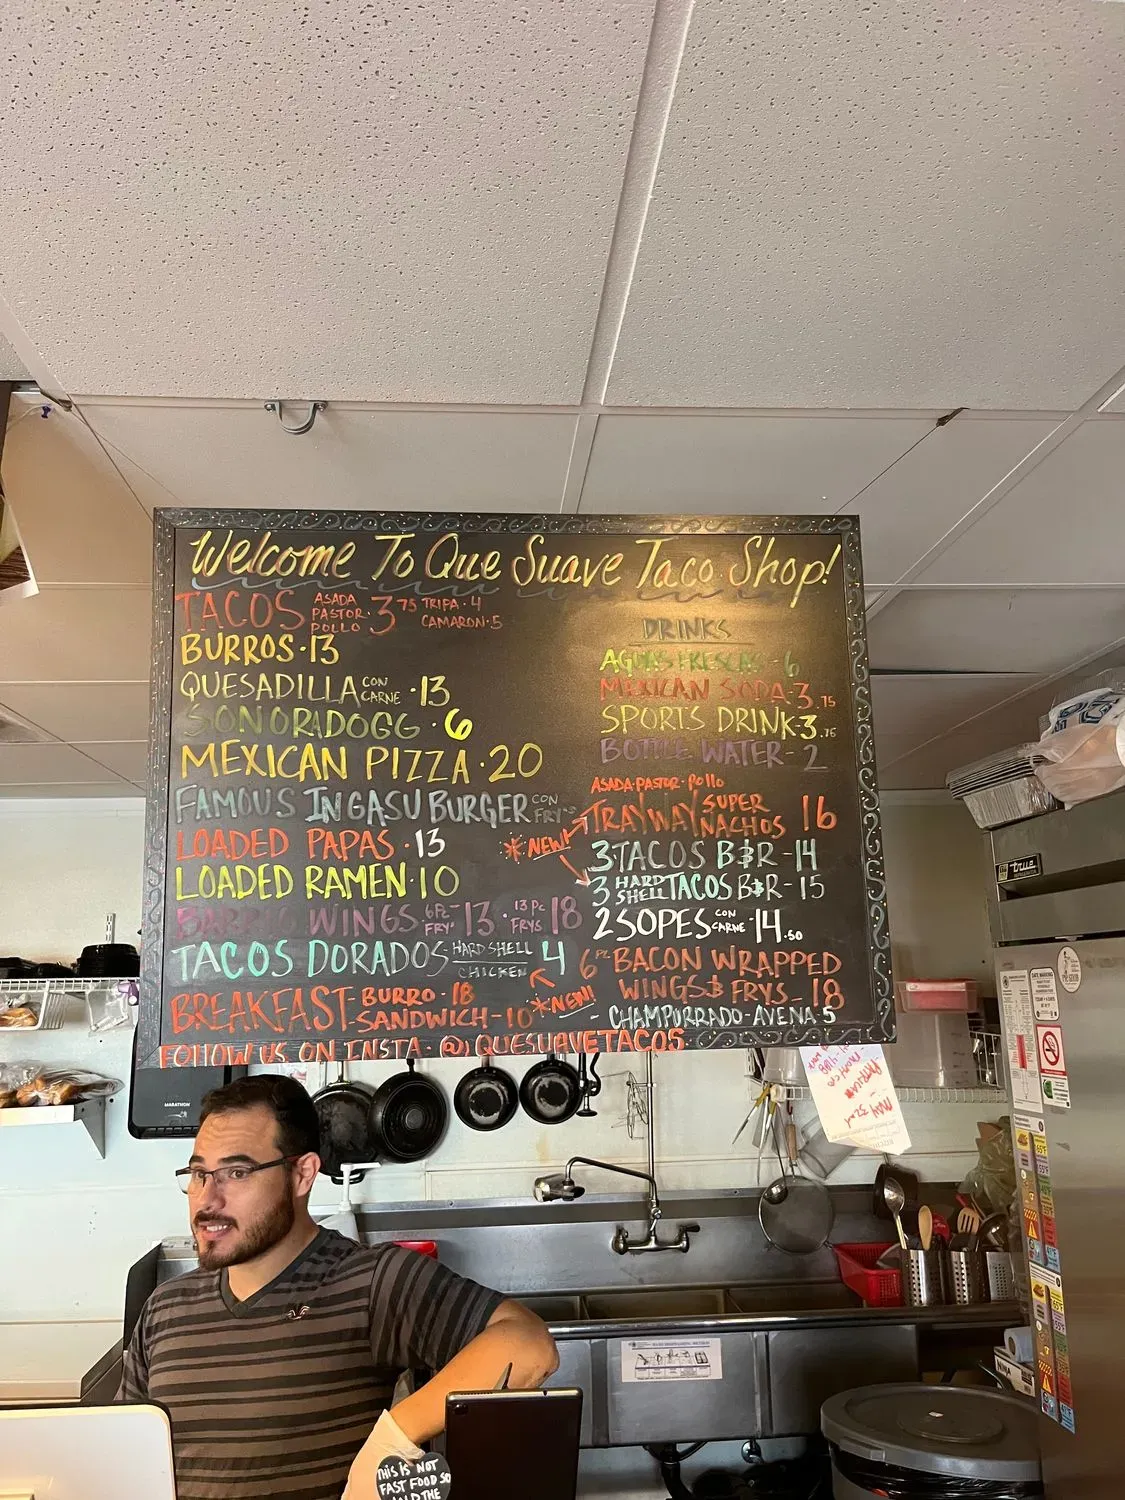 Welcome To Que Suave Taco Shop!
TACOS ASADA PASTOR POLLO · 3 75 TRIPA · 4 CAMARON · 5
BURROS · 13
QUESADILLA CON CARNE · 13
SONORADOGG · 6
MEXICAN PIZZA · 20
FAMOUS INGASU BURGER CON FRY'S
LOADED PAPAS · 13
LOADED RAMEN · 10
BARRIO WINGS 6PC FRY' 13 · 13 PC FRYS 18
TACOS DORADOS - HARD SHELL CHICKEN 4
BREAKFAST - BURRO - 18
SANDWICH - 10 *NEW!
DRINKS
AGUAS FRESCAS - 6
MEXICAN SODA - 3.75
SPORTS DRINK - 3.75
BOTTLE WATER - 2
ASADA · PASTOR · Pollo
TRAYWAY SUPER NACHOS 16
*NEW!
3 TACOS B&R - 14
3 HARD SHELL TACOS B&R - 15
2 SOPES CON CARNE - 14.50
6 PC BACON WRAPPED
WINGS & FRYS - 18
- CHAMPURRADO - AVENA 5
FOLLOW US ON INSTA · @QUESUAVETACOS
MARATHON
true
THIS IS NOT
FAST FOOD SO